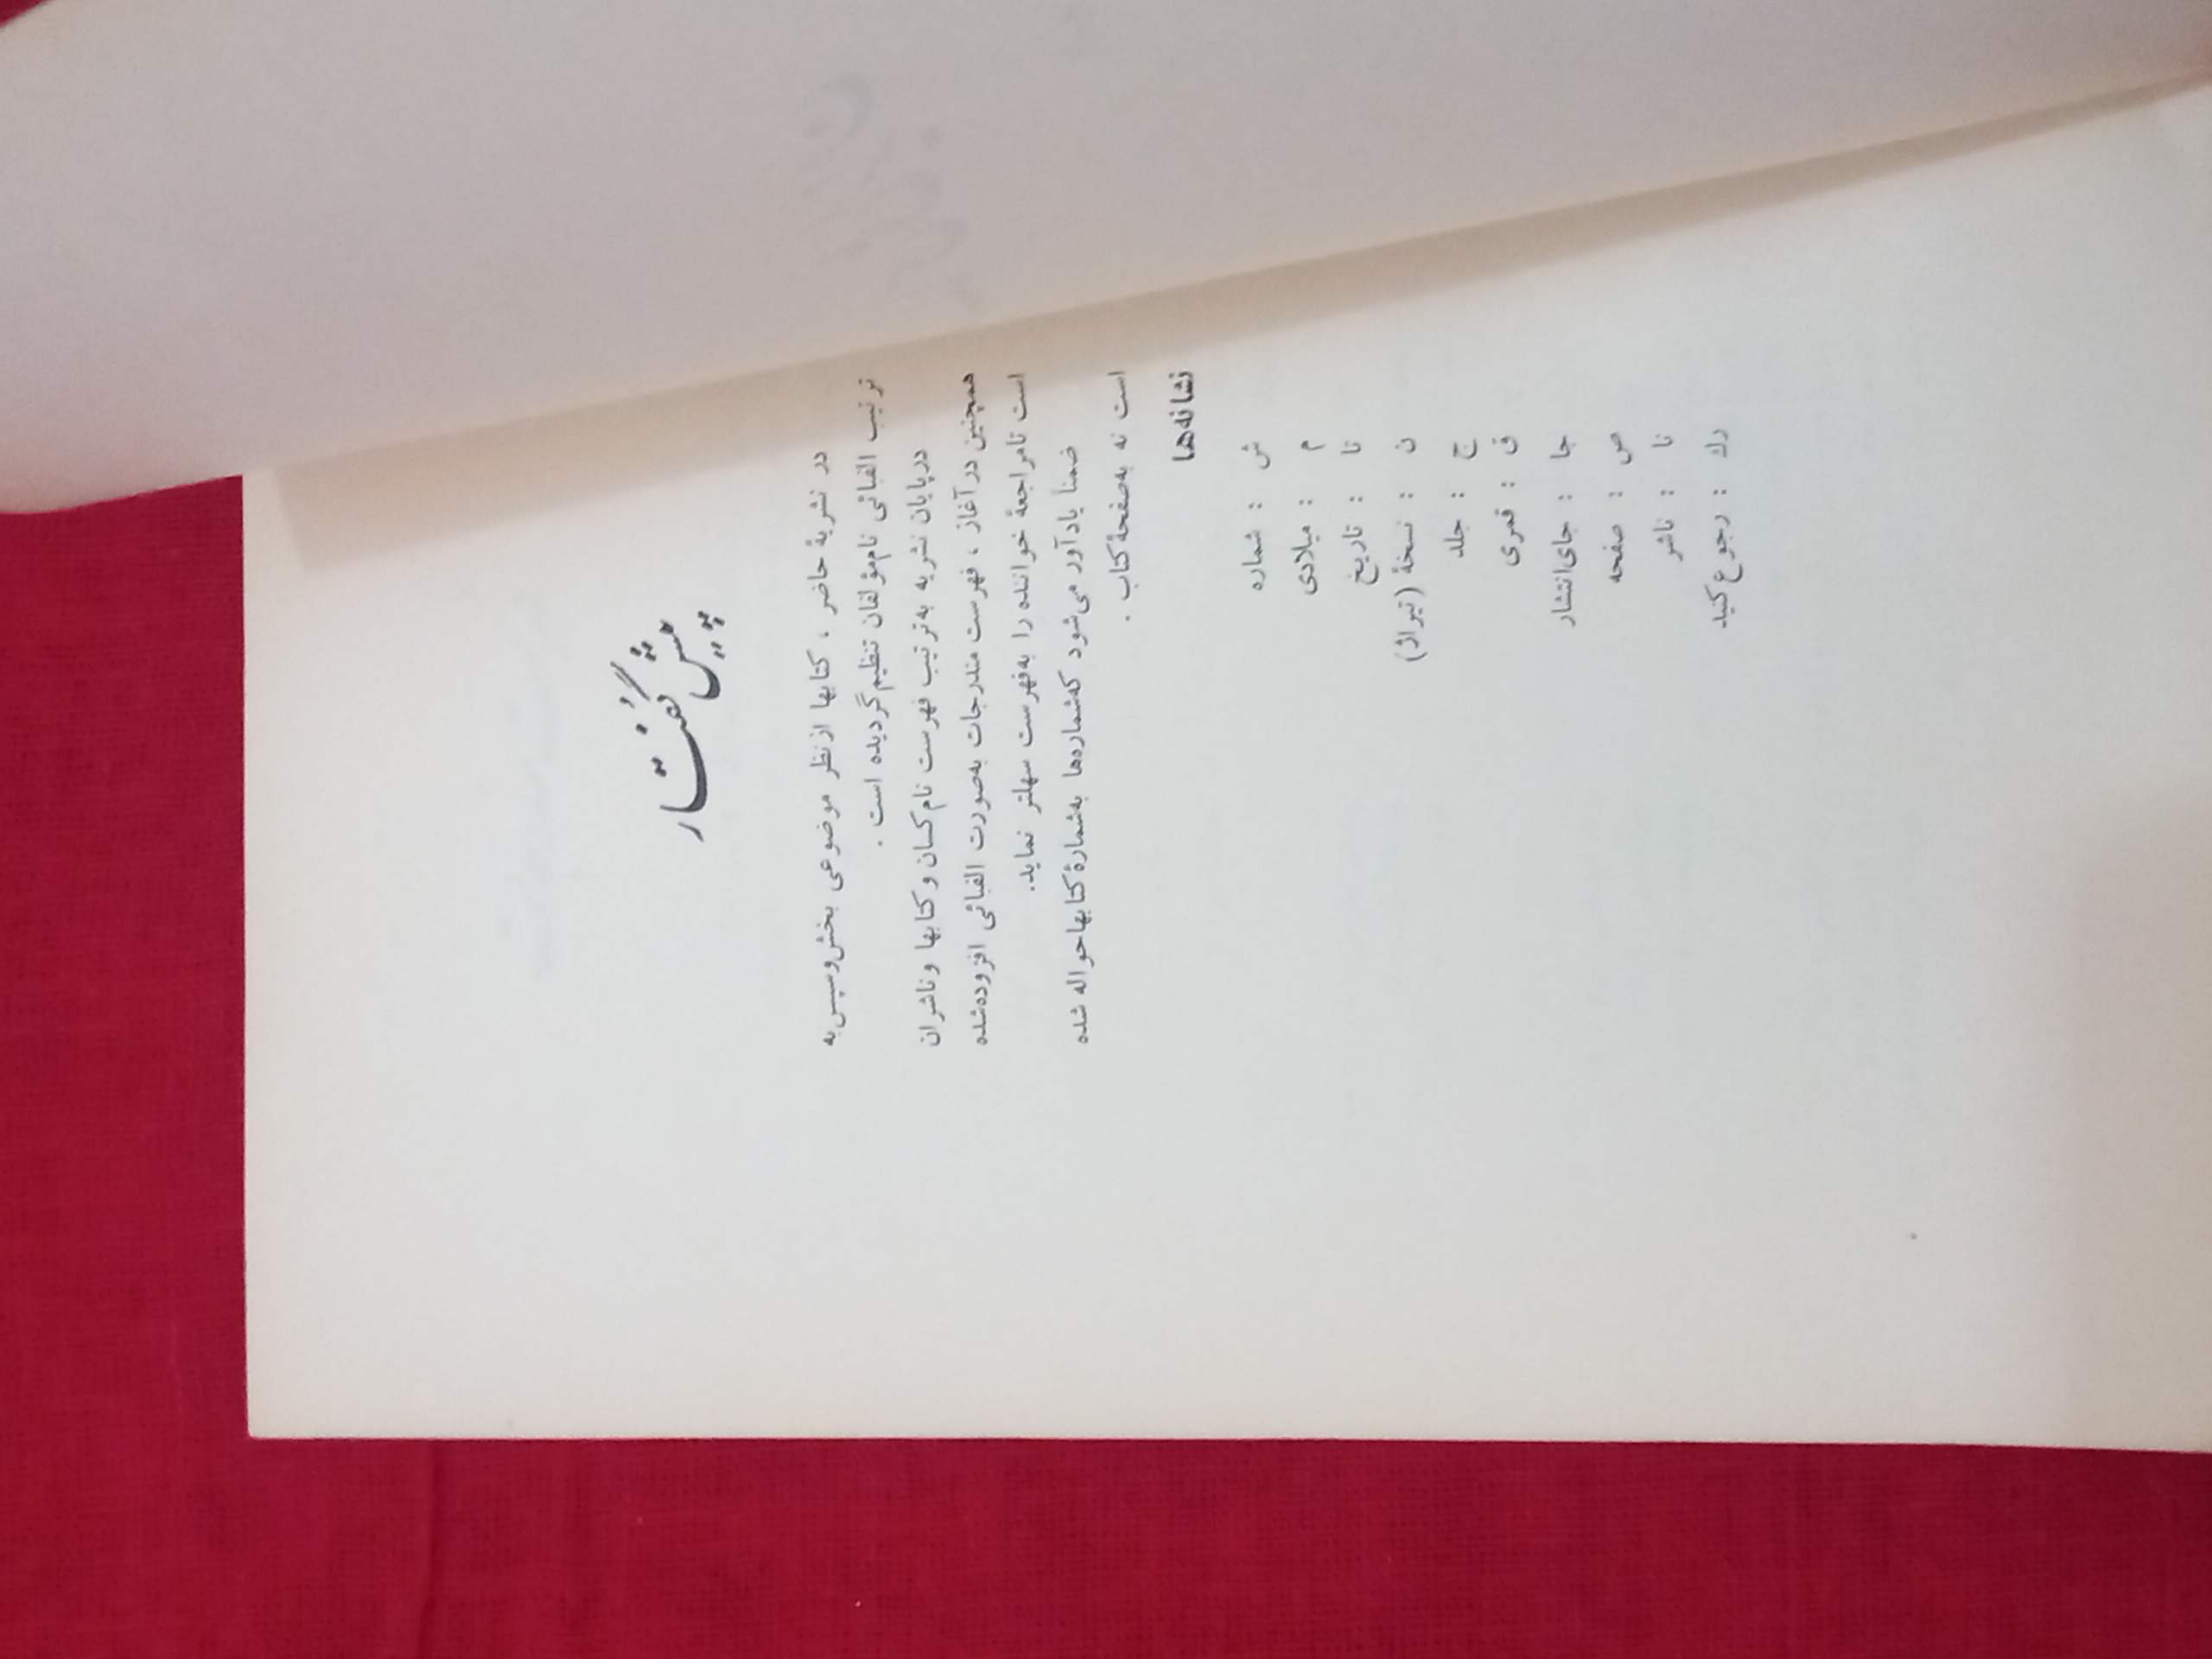 پیش گفتار
در نشریهٔ حاضر ، کتابها از نظر موضوعی بخش و سپس به
ترتیب الفبائی نام مؤلفان تنظیم گردیده است .
در پایان نشریه به ترتیب فهرست نام کسان و کتابها و ناشران
همچنین در آغاز ، فهرست مندرجات به صورت الفبائی افزوده شده
است تا مراجعهٔ خواننده را به فهرست سهلتر نماید.
ضمناً یادآور می‌شود که شماره‌ها به شمارهٔ کتابها حواله شده
است نه به صفحهٔ کتاب .
نشانه‌ها
ش : شماره
م : میلادی
تا : تاریخ
ن : نسخهٔ (تیراژ)
ج : جلد
ق : قمری
جا : جای انتشار
ص : صفحه
نا : ناشر
رك : رجوع کنید